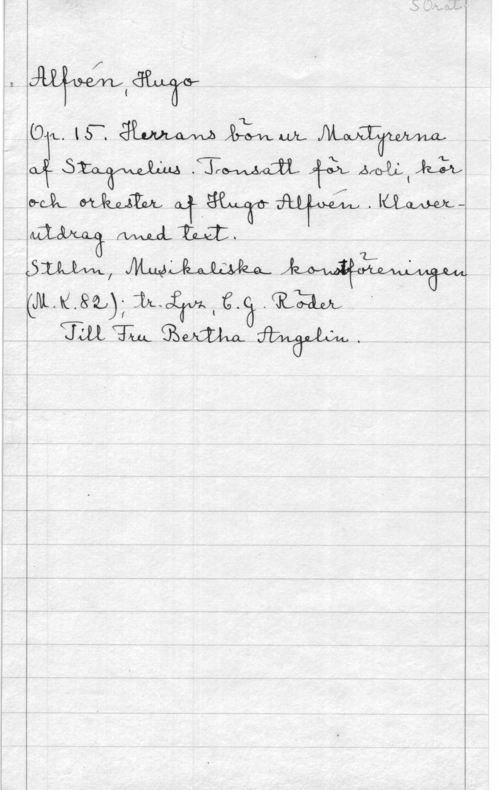 S Orat
Alfvén, Hugo
Op. 15. Herrans bön ur Martyrerna
af Stagnelius. Tonsatt för soli, kör
och orkester af Hugo Alfvén. Klaver-
utdrag med text.
Sthlm, Musikaliska konstföreningen
(M.K.82); tr. Lpz, C.G. Röder
Till Fru Bertha Angelin.